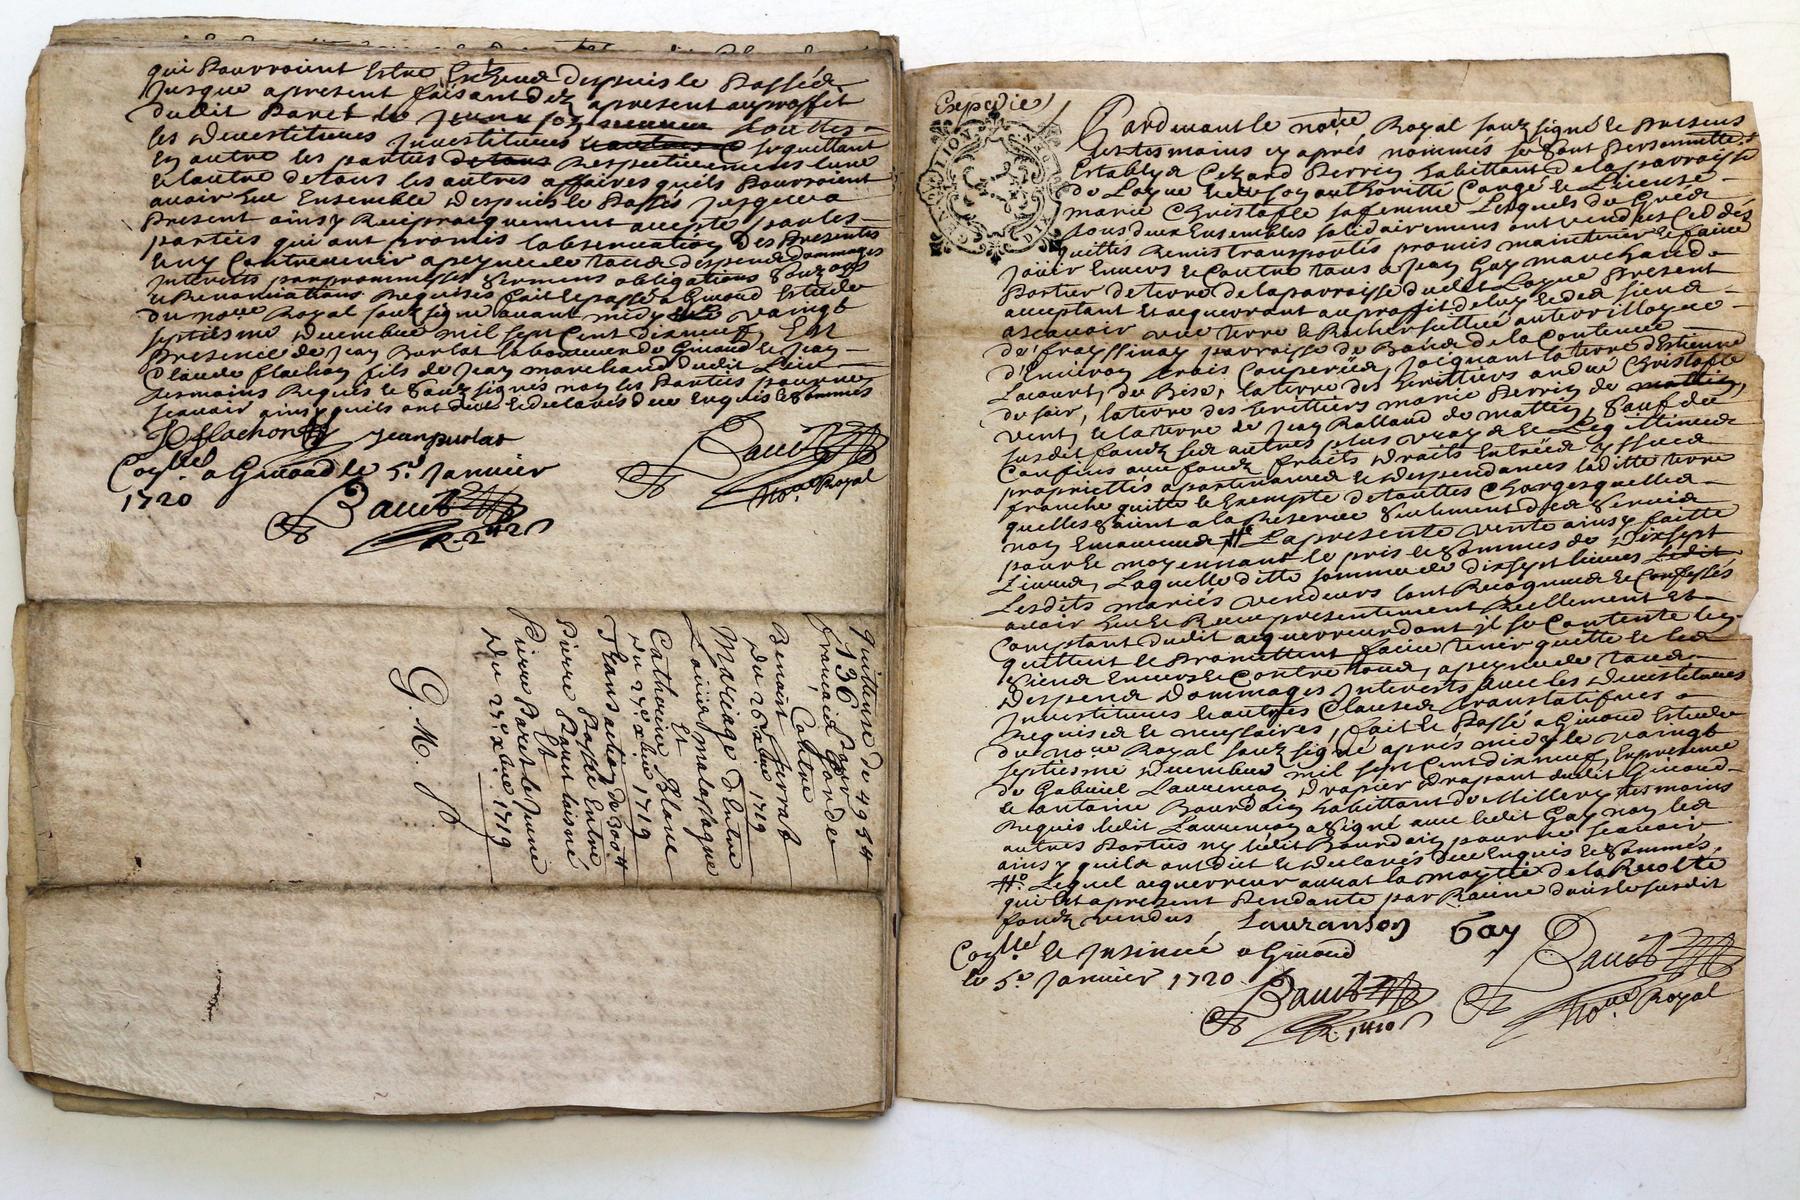 qui Pourroient Estre Escheus despuis le Passé de
Jusque apresent faisant dez apresent auproffit
dudit Paret le
les devestitures Investitures se quittant
En outre les parties de tous Respectivement lune
et lautre de tous les autres affaires quils Pourroient
avoir heu Ensemble despuis le Passé Jusques a
Present ainsy Reciproquement accepté par les
parties qui ont promis lobservation des Presentes
et ny Contrevenir a peyne de tous despens dommages
Interests par promesses serment obligations Soumons
et Renonciations Requises fait et passé a Givord Estude
du no.re Royal souz signé avant midy le vaingt
septiesme decembre mil sept Cent dixneuf, En
Presence de Jean Purlat laboureur de Givord et Jean
Claude flachon fils de Jean marchand dudit Lieu
tesmoins Requis et Souz signés non les Parties pour ne
scavoir ainsy quils ont dict et declarés deue Enquis et Sommés
flachon Jean purlat
Con.llé a Givord le 5.e Janvier
1720
no.re Royal
Quittance de 495 lt
13 s
Par
francois Gorde
Contre
Benoist Jurrat
du 26 xbre 1719
Mariage d'Entre
Louis malassagne
Et
Catherine Blanc
du 27e xbre 1719
Transaction de 300 lt
Passée Entre
Pierre Paret laisné
Et
Pierre Paret le Jeune
du 27e xbre 1719
G. M. J.
Expedié
Pardevant le no.re Royal souz signé et Presens
les tesmoins cy aprés nommés se sont Personnellem.t
Establys Cezard Perrin habittant de la parroisse
de Loyre et de soy authoritté Congé et License
marie Christofle sa femme Lesquels de Gréés
tous deux Ensembles solidairement ont vendus Cedés
quittés Remis transportés promis maintenir et faire
Jouir Envers et Contre tous a Jean Gay marchand
Portier de terre de la parroisse dudit Loyre Present
acceptant et acquerrant au proffit de luy et des siens
ascavoir une terre et Rocher scittué au territtoyre
de frayssinay parroisse de de la Contenue
d'Environ trois Couperées, Joignant la terre d'Estienne
Lacourt, de Bise, la terre des herittiers andré Christofle
du soir, la terre des herittiers marie Perrin de mattin,
vent, et la terre de Jean Rolland de mattin, Sauf du
susdit fondz ses autres plus vrays et Legittimes
Confins avec fondz fruits droits Entrées yssues
proprietés apartenances et despendances laditte terre
franche quitte et Exempte de touttes Charges quelles
quelles Soient a la Reserve Seulement des Servis
non Emannués # La presente vente ainsy faitte
pour et moyennant le pris et Sommes de dixsept
Livres, Laquelle ditte somme de dixsept livres
Lesdits mariés vendeurs sont Recognus et Confessés
avoir heu et Receu presentement Reellement et
Comptant dudit acquerreur dont jl se Contente len
quittent et Promettent faire tenir quitte et les
siens Envers et Contre tous, a peyne de tous
despens dommages Interests avec les devestitures
Investitures et autres Clauses translatifues
Requises et necessaires, fait et Passé a Givord Estude
du no.re Royal souz signé aprés midy le vaingt
septiesme decembre mil sept Cent dixneuf, En presence
de Gabriel Laurenson drapier drapant dudit Givord
et antoine Bourdoin habittant de Millery tesmoins
Requis ledit Laurenson a signé avec ledit Gay non les
autres Parties ny ledit Bourdoin pour ne scavoir
ainsy quils ont dict et declarés deue Enquis et Sommés,
# Lequel acquerreur aurat la moytié de la Recolte
qui Est apresent Pendante par Racine dans le susdit
fondz vendus
Lauranson Gay
Con.llé et Insinué a Givord
le 5.e Janvier 1720
no.re Royal